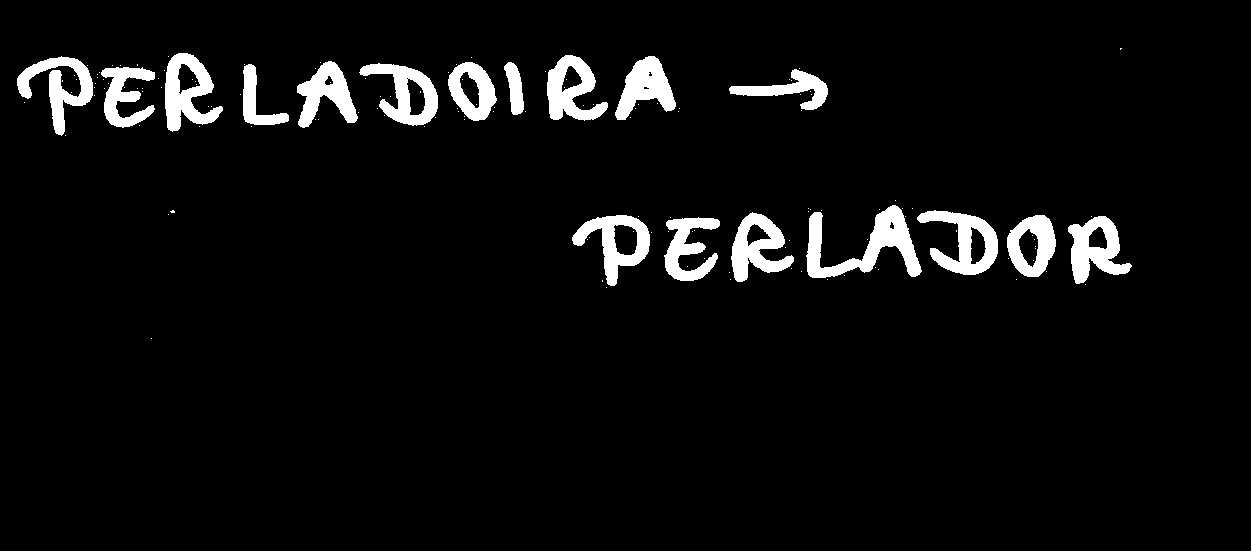 PERLADOIRA →
PERLADOR